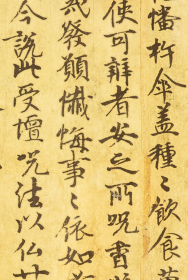 幡杵傘盖種〻飲食
使可辞者安之所咒香
發願懺悔事〻依如
今説此受壇咒法以仏